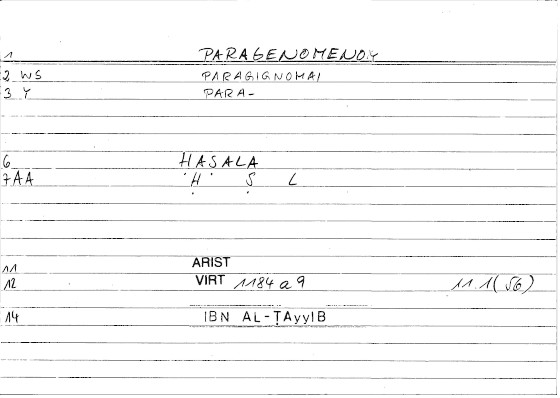 1 PARAGENOMENOY
2 WS PARAGIGNOMAI
3 Y PARA-
6 ḤAṢALA
7 AA Ḥ Ṣ L
11 ARIST
12 VIRT 1184 a 9 11.1 (56)
14 IBN AL-ṬAyyIB